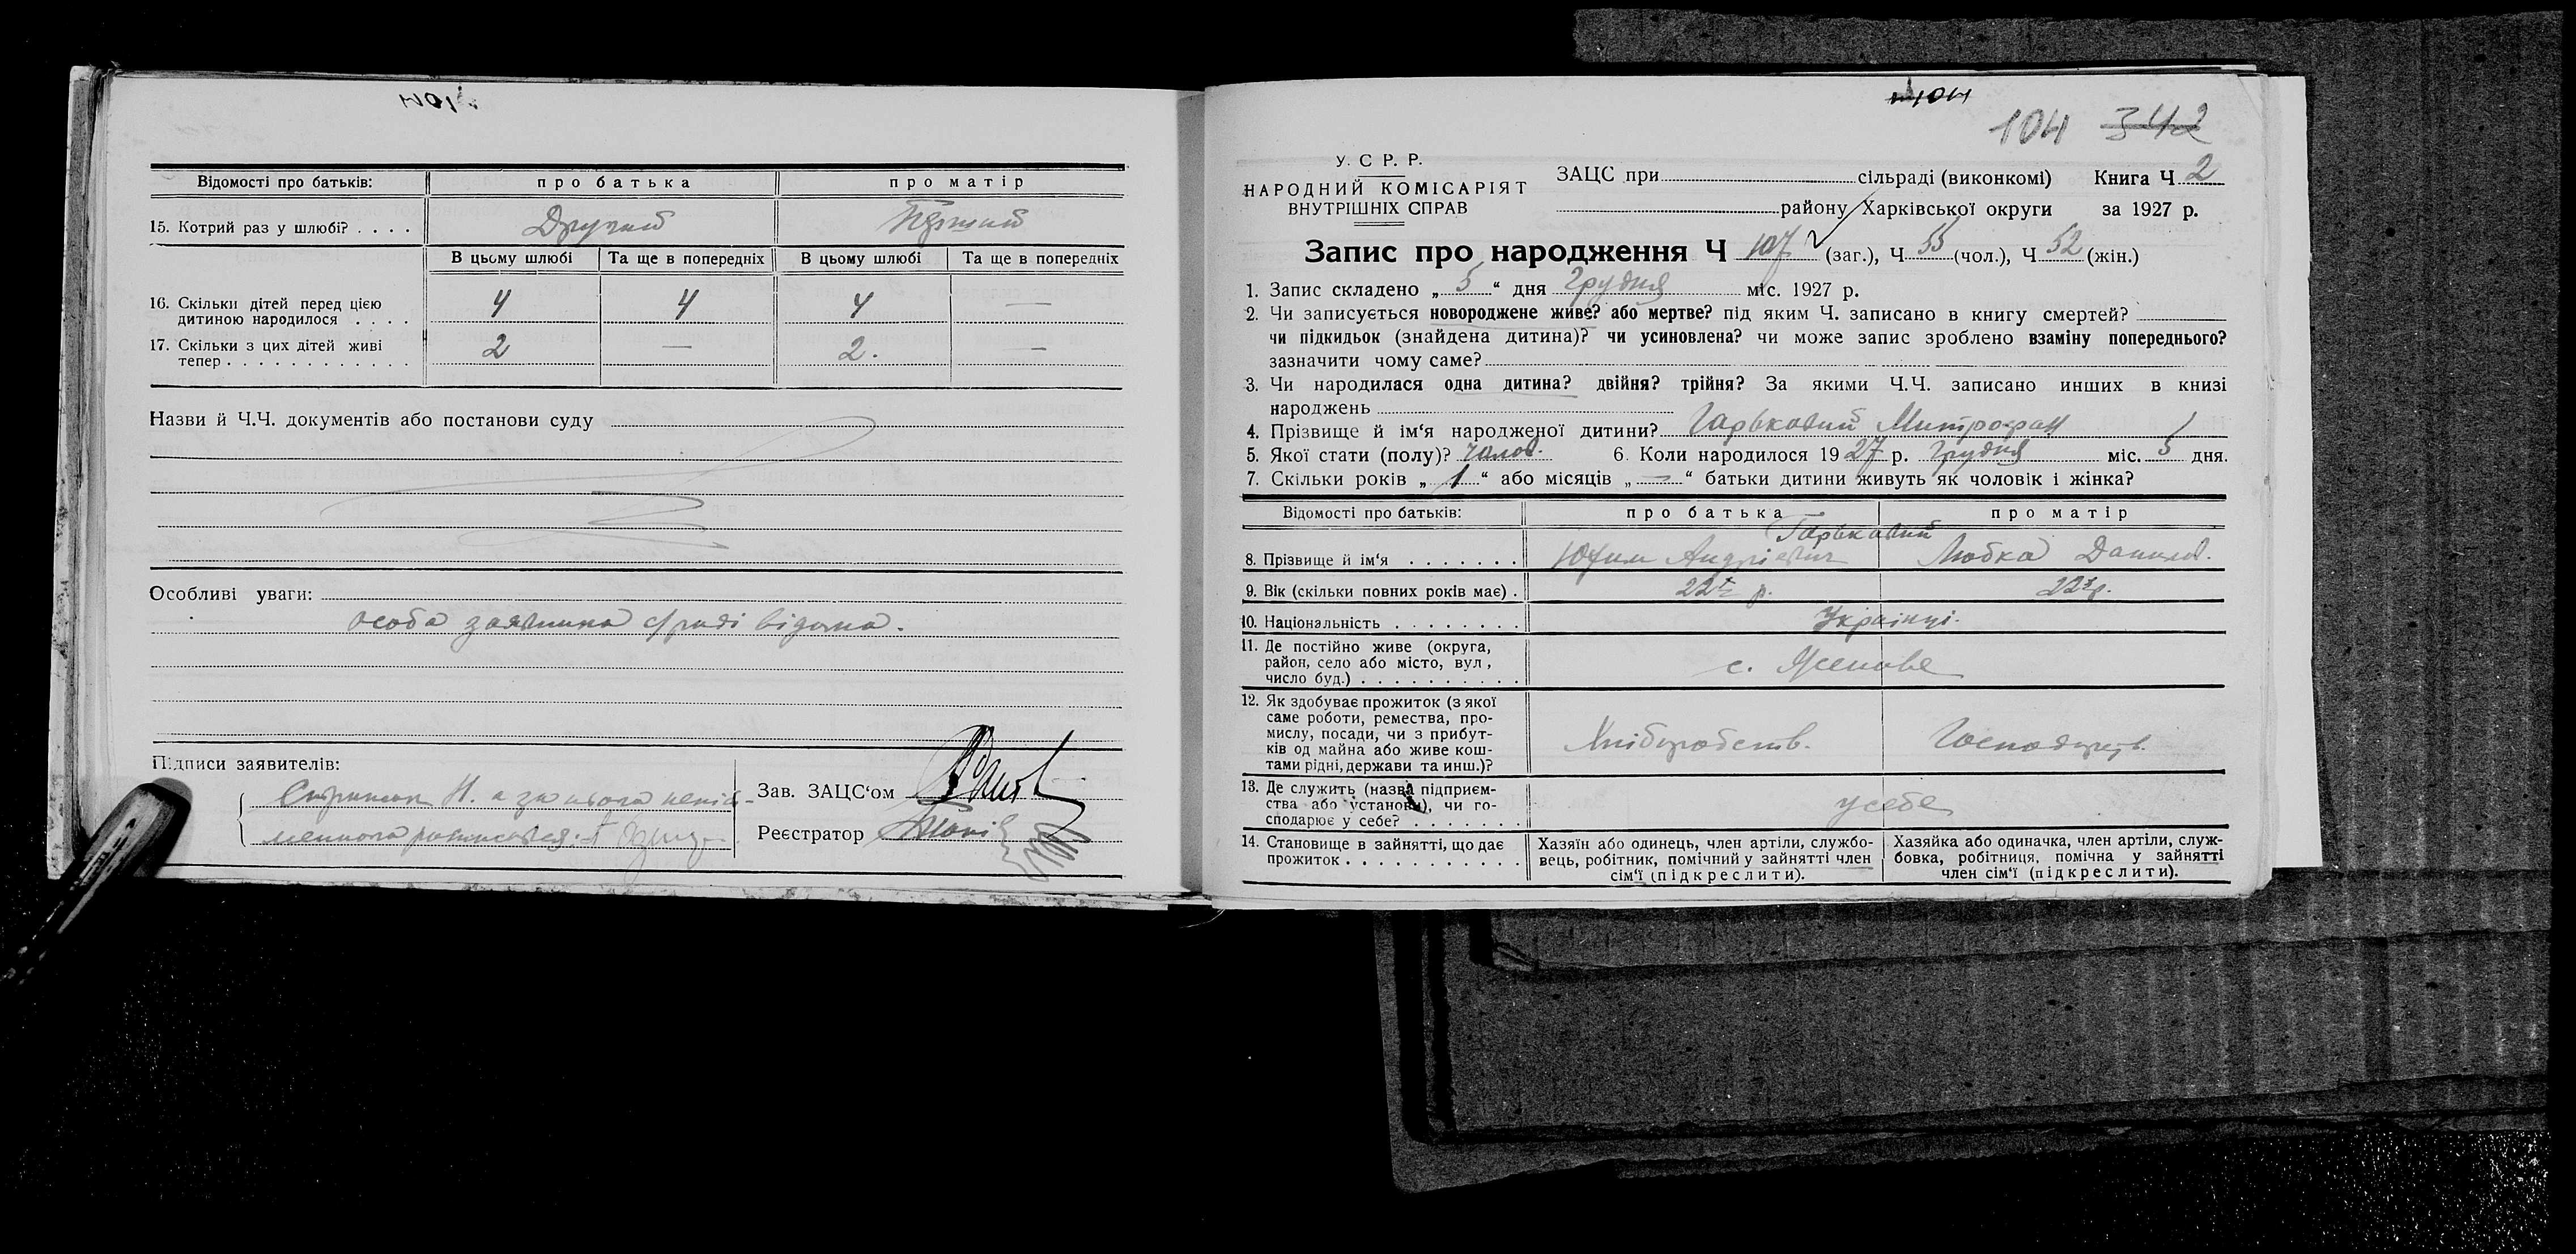 Відомості про батьків: про батька про матір
15. Котрий раз у шлюбі? . . . . Другий Перший
В цьому шлюбі Та ще в попередніх В цьому шлюбі Та ще в попередніх
16. Скільки дітей перед цією
дитиною народилося . . . . 4 4 4 —
17. Скільки з цих дітей живі
тепер . . . . . . . . . . . . 2 — 2. —
Назви й Ч.Ч. документів або постанови суду
Особливі уваги:
особа заявника с/раді відома.
Підписи заявителів:
Н. а за нього
Зав. ЗАЦС'ом
Реєстратор
104 342
У. С Р. Р.
НАРОДНИЙ КОМІСАРІЯТ
ВНУТРІШНІХ СПРАВ
ЗАЦС при сільраді (виконкомі) Книга Ч 2
району Харківської округи за 1927 р.
Запис про народження Ч 107 (заг.), Ч 55 (чол.), Ч 52 (жін.)
1. Запис складено „ 5 “ дня Грудня міс. 1927 р.
2. Чи записується новороджене живе? або мертве? під яким Ч. записано в книгу смертей?
чи підкидьок (знайдена дитина)? чи усиновлена? чи може запис зроблено взаміну попереднього?
зазначити чому саме?
3. Чи народилася одна дитина? двійня? трійня? За якими Ч.Ч. записано инших в книзі
народжень
4. Прізвище й ім'я народженої дитини? Гарьковий Митрофан
5. Якої стати (полу)? чолов. 6. Коли народилося 1927 р. Грудня міс. 5 дня.
7. Скільки років „ 1 “ або місяців „ — “ батьки дитини живуть як чоловік і жінка?
Відомості про батьків: про батька про матір
Гарьковий
8. Прізвище й ім'я . . . . . . . Юхим Андрієвич Любка Данил.
9. Вік (скільки повних років має) . 22 р. 22 р.
10. Національність . . . . . . . . Українці.
11. Де постійно живе (округа,
район, село або місто, вул,
число буд.) . . . . . . . . . . с.
12. Як здобуває прожиток (з якої
саме роботи, ремества, про-
мислу, посади, чи з прибут-
ків од майна або живе кош-
тами рідні, держави та инш.)? Хліборобств. Господарств.
13. Де служить (назва підприєм-
ства або установи), чи го-
сподарює у себе? . . . . . . . у себе
14. Становище в зайнятті, що дає
прожиток . . . . . . . . . . . .
Хазяїн або одинець, член артіли, службо-
вець, робітник, помічний у зайнятті член
сім'ї (підкреслити).
Хазяйка або одиначка, член артіли, служ-
бовка, робітниця, помічна у зайнятті
член сім'ї (підкреслити).